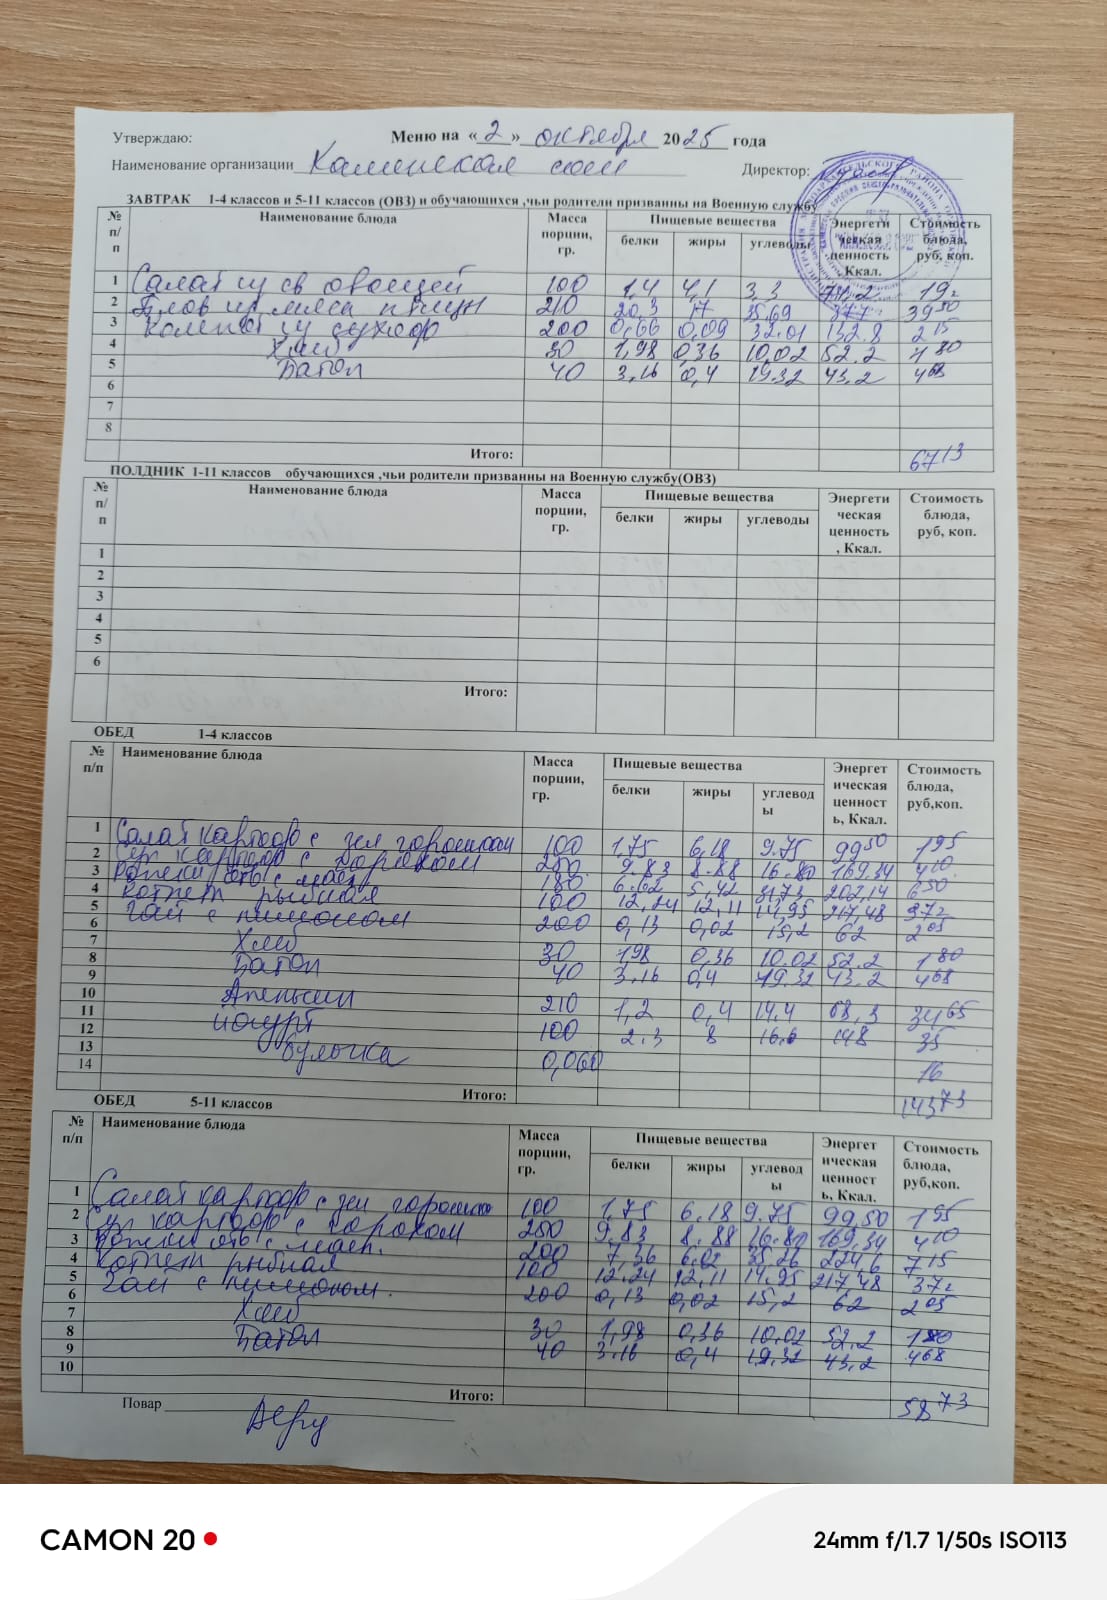 Утверждаю: Меню на «2» октября 2025 года
Наименование организации Каменская сош Директор:
ЗАВТРАК 1-4 классов и 5-11 классов (ОВЗ) и обучающихся ,чьи родители призванны на Военную службу
№ п/п Наименование блюда Масса порции, гр. Пищевые вещества Энергети ческая ценность , Ккал. Стоимость блюда, руб, коп.
белки жиры углеводы
1 Салат из св овощей 100 1,4 4,1 3,3 19
2 Плов из мяса птицы 210 20,3 17 35.69 377 39 50
3 Компот из сухофр 200 0,66 0,09 32.01 132.8 2 15
4 Хлеб 30 1,98 0,36 10,02 52.2 1 80
5 Батон 40 3,16 0,4 19.32 43,2 4 68
6
7
8
Итого: 67 13
ПОЛДНИК 1-11 классов обучающихся ,чьи родители призванны на Военную службу(ОВЗ)
№ п/п Наименование блюда Масса порции, гр. Пищевые вещества Энергети ческая ценность , Ккал. Стоимость блюда, руб, коп.
белки жиры углеводы
1
2
3
4
5
6
Итого:
ОБЕД 1-4 классов
№ п/п Наименование блюда Масса порции, гр. Пищевые вещества Энергет ическая ценност ь, Ккал. Стоимость блюда, руб,коп.
белки жиры углевод ы
1 Салат картоф с зел горошком 100 1,75 6,18 9.75 99 50 1 95
2 суп картоф с горохом 250 9.83 8.88 16.80 169,34 4 10
3 отв с масл 180 6.62 5.42 31,73 202,14 6 50
4 котлет рыбная 100 12,24 12,11 14,95 217,48 37 2
5 чай с лимоном 200 0,13 0,02 15,2 62 2 05
6
7 Хлеб 30 1,98 0,36 10.02 52.2 1 80
8 Батон 40 3,16 0,4 19.32 43.2 4 68
9
10 Апельсин 210 1,2 0,4 14.4 68,3 34 65
11 йогурт 100 2.3 8 16.6 148 35
12
13 булочка 0,060 16
14
Итого: 143 73
ОБЕД 5-11 классов
№ п/п Наименование блюда Масса порции, гр. Пищевые вещества Энергет ическая ценност ь, Ккал. Стоимость блюда, руб,коп.
белки жиры углевод ы
1 Салат картоф с зел горошко 100 1,75 6.18 9.75 99,50 1 95
2 суп картоф с горохом 250 9.83 8.88 16.80 169,34 4 10
3 отв с масл. 200 7,36 6.02 35.26 224,6 7 15
4 котлет рыбная 100 12.24 12,11 14.95 217,48 37 2
5 чай с лимоном. 200 0,13 0,02 15,2 62 2 05
6
7 Хлеб 30 1,98 0,36 10,02 52,2 1 80
8 Батон 40 3.16 0,4 19.32 43,2 4 68
9
10
Итого: 58 73
Повар
CAMON 20
24mm f/1.7 1/50s ISO113